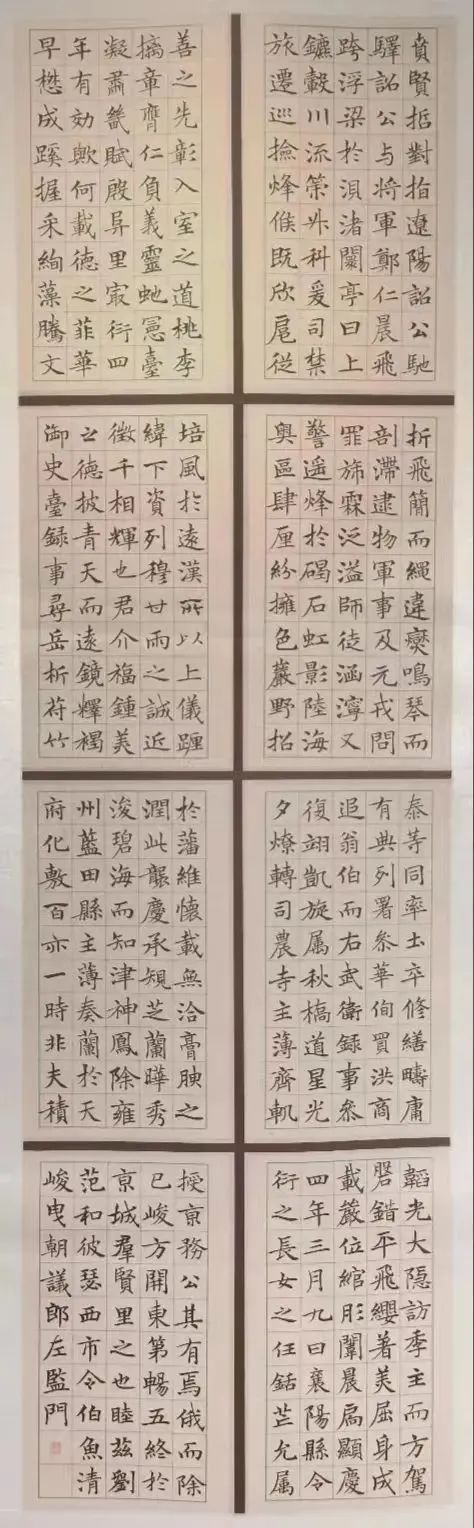 賁賢括對指遼陽詔公馳
驛詔公与將軍鄭仁晨飛
跨浮梁於浿渚闡亭曰上
鑣轂川流榮舛科爰司禁
旅遷巡撿烽候既欣扈從
折飛簡而繩違爕鳴琴而
剖滯逮物軍事及元戎問
罪旆霖泛溢師徒涵濘又
警遥烽於碣石虹影陸海
奥區肆厘紛擁色巖野招
泰等同率土卒修繕疇庸
有典列署叅華侚買洪商
追翁伯而右武衛録事叅
復翊凱旋属秋槁道星光
夕燎轉司農寺主薄齊軓
韜光大隠訪季主而方駕
磬錯平飛纓著美屈身成
載巖位綰彤闈晨扄顯慶
四年三月九日襄陽縣令
衍之長女之任銛芒允属
善之先彰入室之道桃李
摛章膺仁負義靈虵憲臺
凝肅賦殷异里㝡衍四
年有効歟何載徳之菲華
早楙成蹊握采絢藻騰文
培風於遠漢所以上儀躔
緯下資列穆甘雨之誠近
徵千相輝也君介福鍾美
之德披青天而遠鏡釋褐
御史臺録事尋岳析苻竹
於藩維懷載無洽膏腴之
潤此襲慶承規芝蘭曄秀
浚碧海而知津神鳳除雍
州藍田縣主薄奏蘭於天
府化敷百亦一時非夫積
授京務公其有焉俄而除
已峻方開東第暢五終於
京城羣賢里之也睦茲劉
范和彼瑟西市令伯魚清
峻曳朝議郎左監門